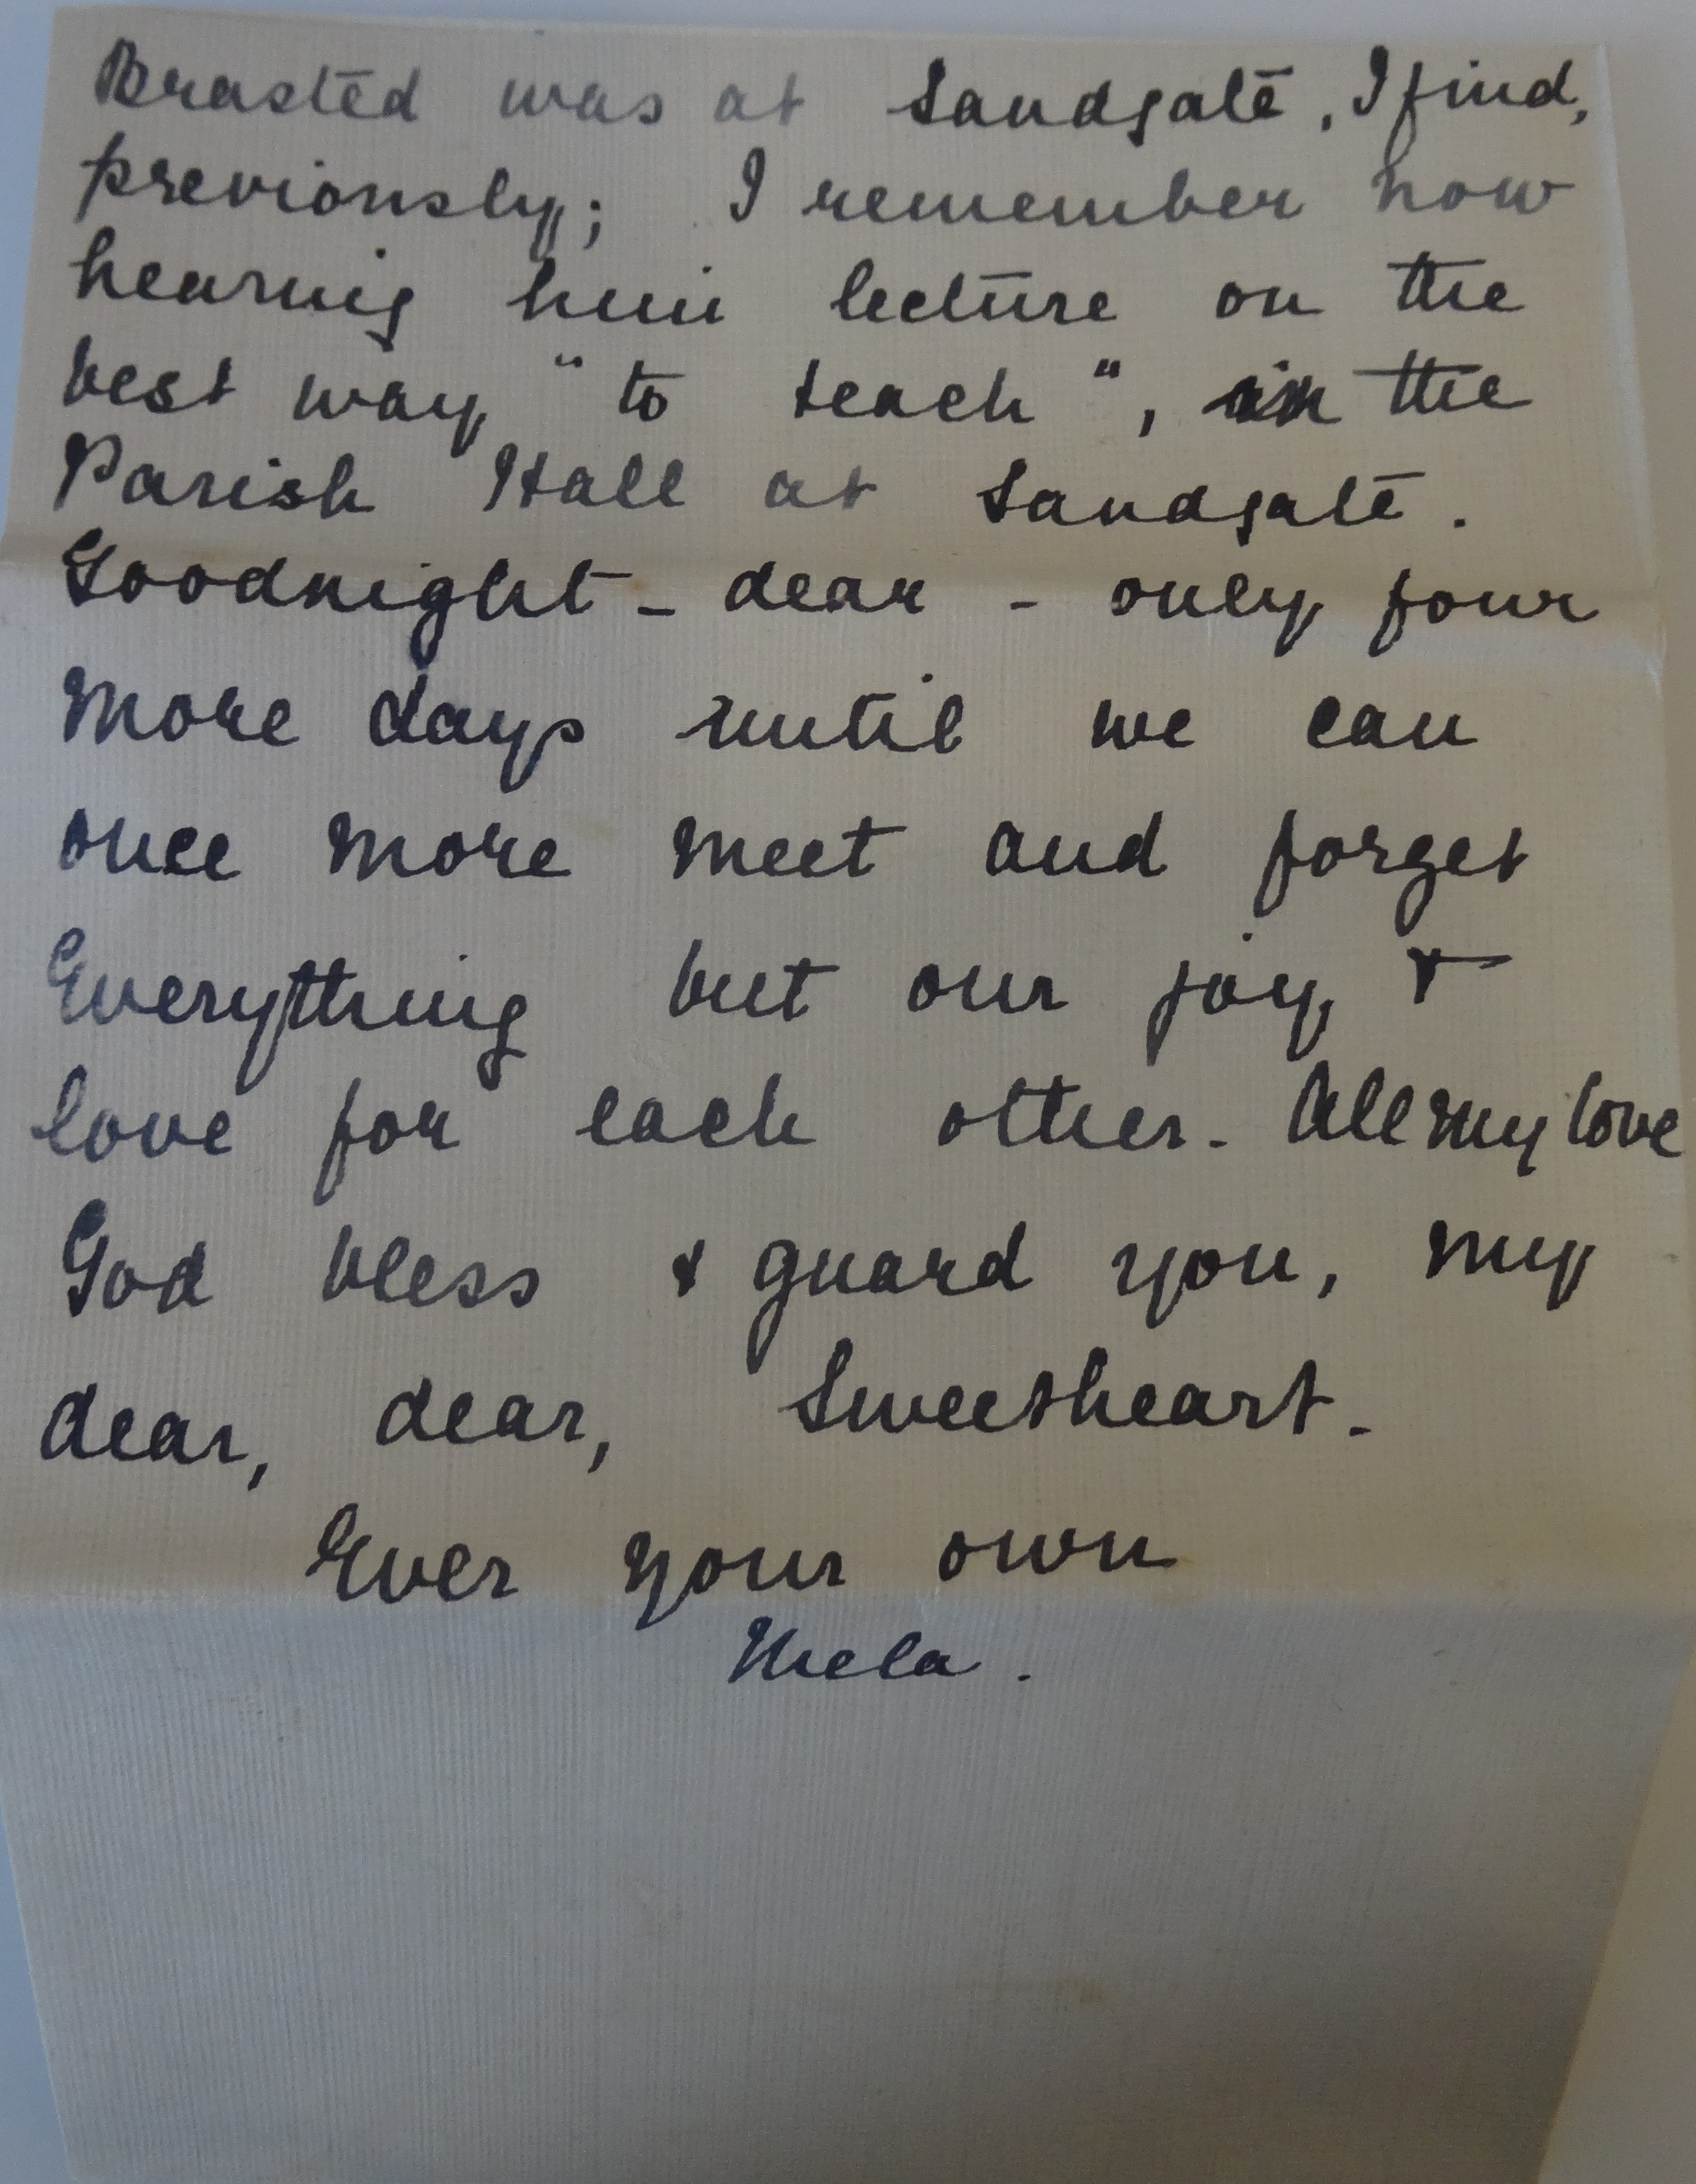 Brasted was at Sandgate, I find,
previously; I remember now
hearing him lecture on the
best way "to teach", in the
Parish Hall at Sandgate.
Goodnight - dear - only four
more days until we can
once more meet and forget
Everything but our joy &
love for each other. All my love
God bless & guard you, my
dear, dear, Sweetheart.
Ever your own